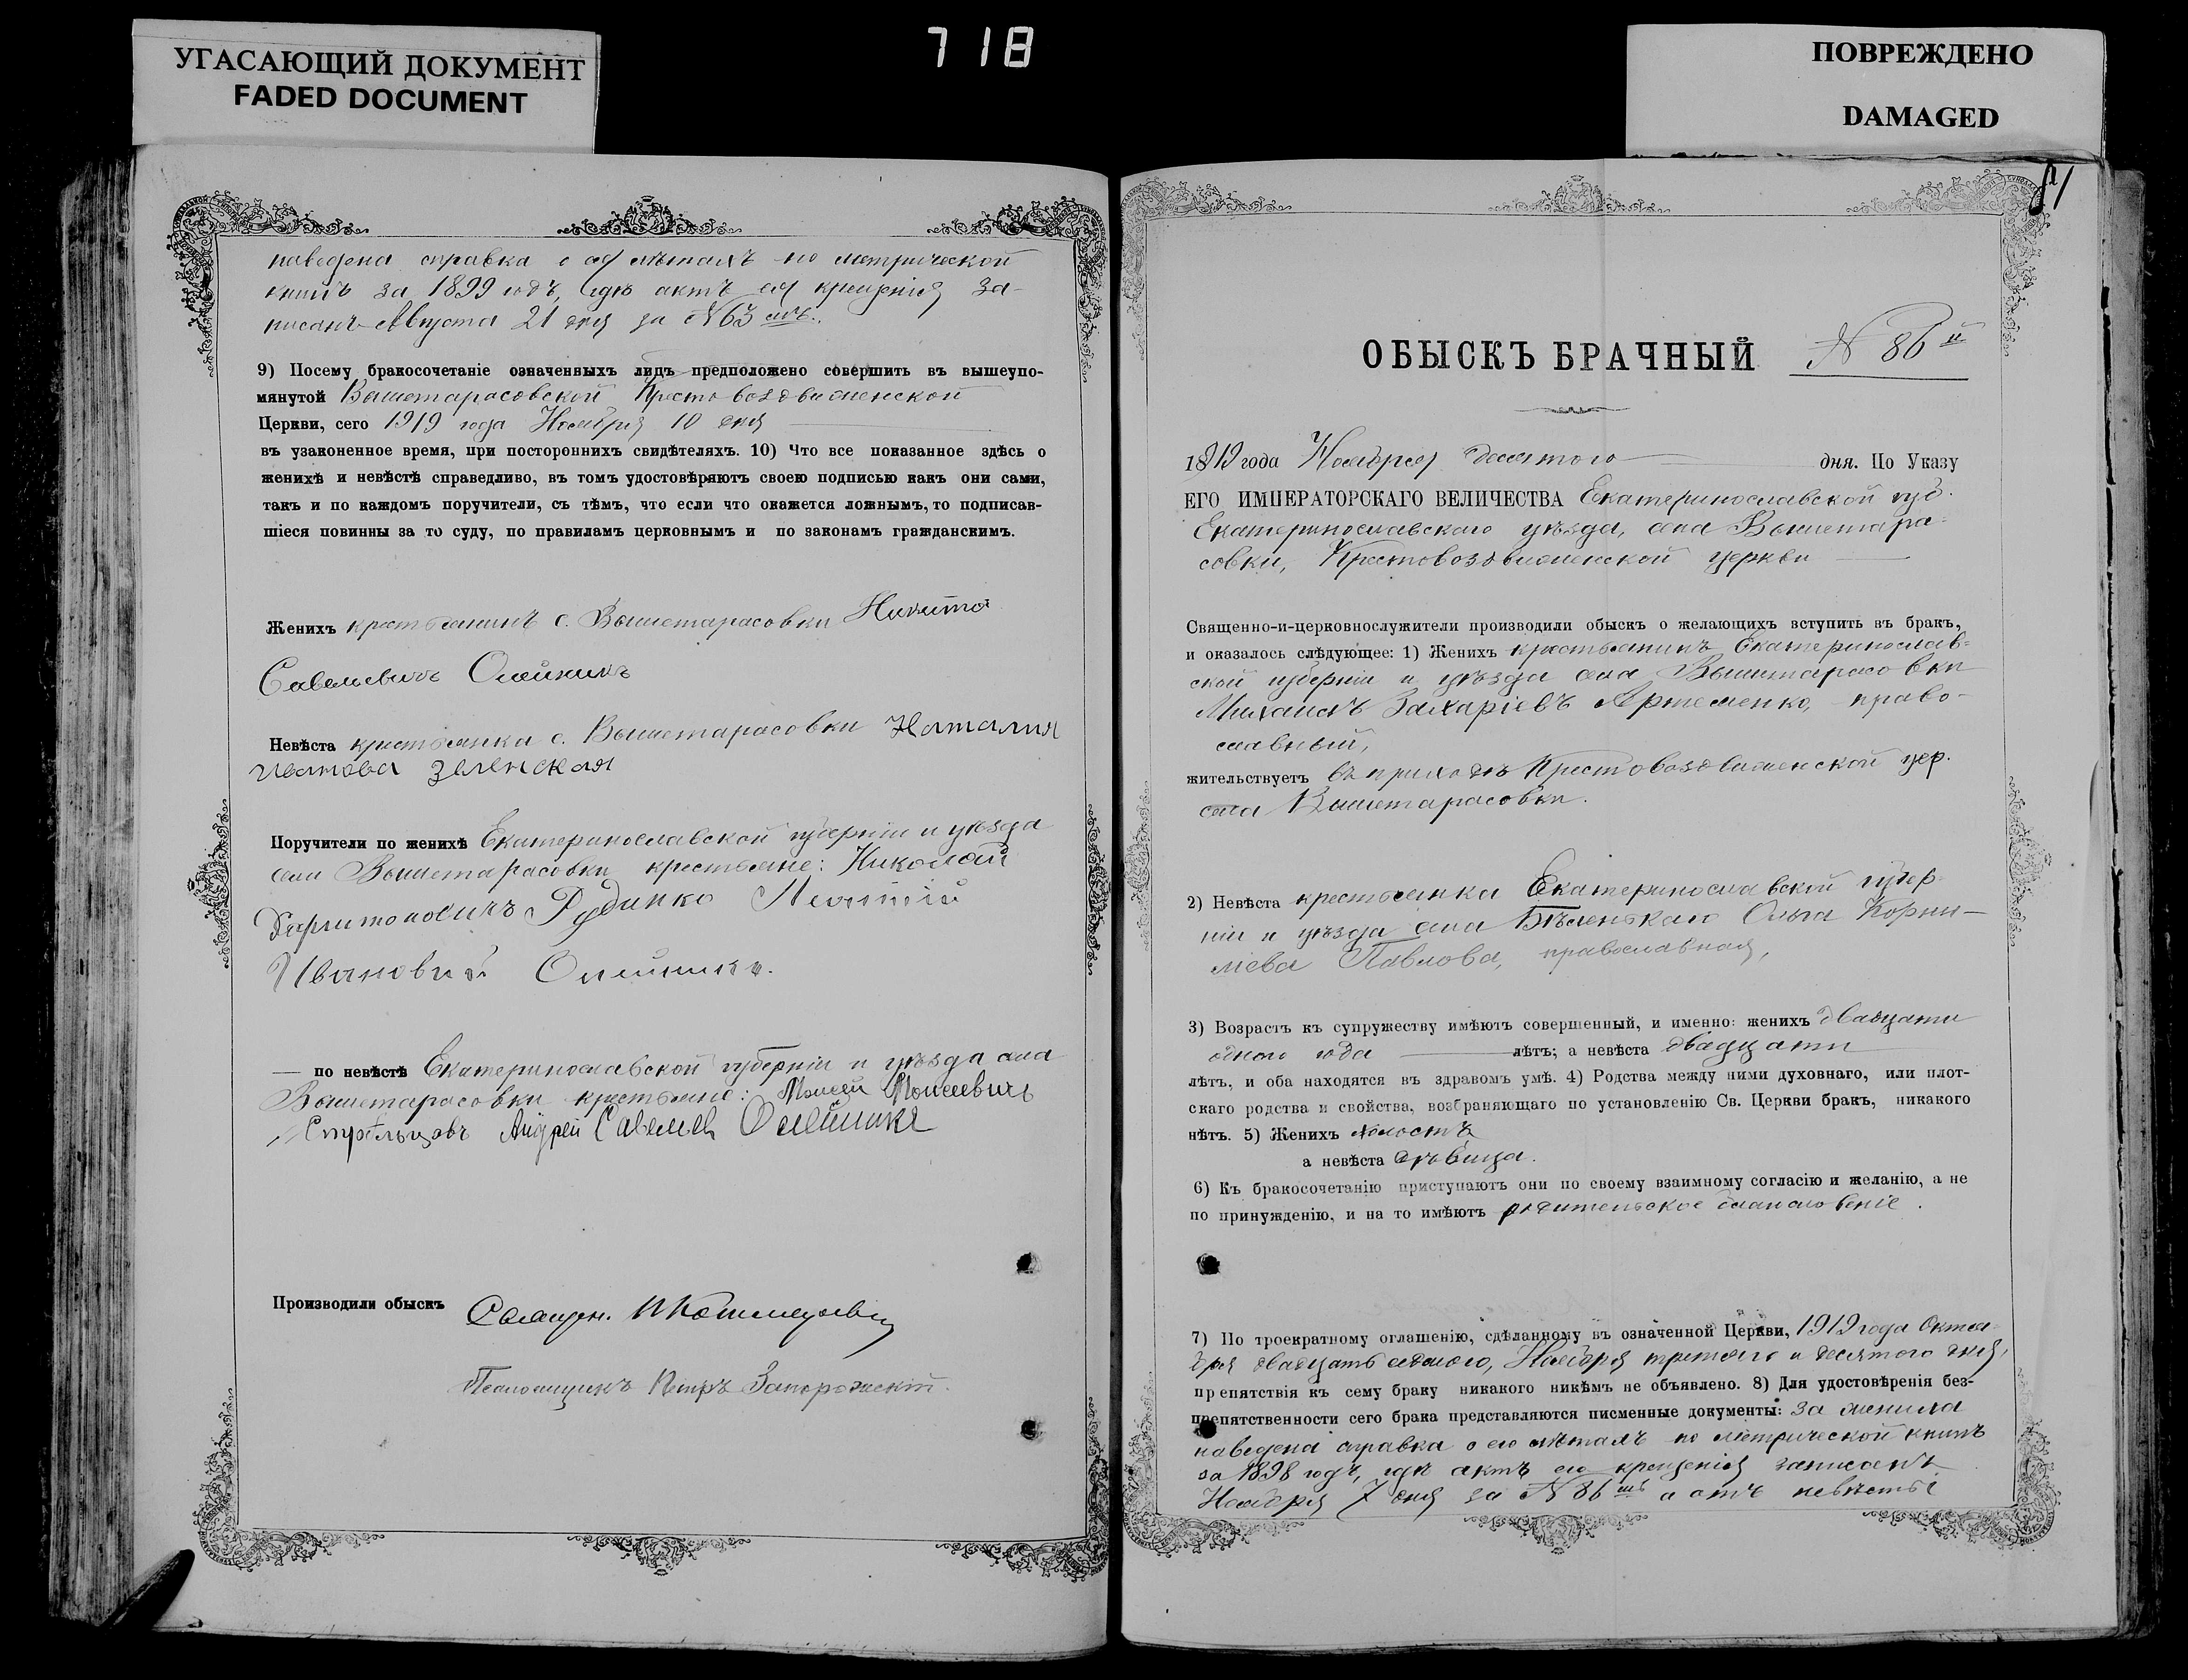 УГАСАЮЩИЙ ДОКУМЕНТ
FADED DOCUMENT
718
ПОВРЕЖДЕНО
DAMAGED
наведена справка о ея лѣтахъ по метрической
книгѣ за 1899 годъ, гдѣ актъ ея крещенія за-
писанъ Августа 21 дня за № 63 мъ.
9) Посему бракосочетаніе означенныхъ лицъ предположено совершить въ вышеупо-
мянутой Вышетарасовской Крестовоздвиженской
Церкви, сего 1919 года Ноября 10 дня
въ узаконенное время, при постороннихъ свидѣтеляхъ. 10) Что все показанное здѣсь о
женихѣ и невѣстѣ справедливо, въ томъ удостовѣряютъ своею подписью какъ они сами,
такъ и по каждомъ поручители, съ тѣмъ, что если что окажется ложнымъ, то подписав-
шіеся повинны за то суду, по правиламъ церковнымъ и по законамъ гражданскимъ.
Женихъ крестьянинъ с. Вышетарасовки Никита
Савельевичъ Олейникъ
Невѣста крестьянка с. Вышетарасовки Наталия
Иванова Зеленская
Поручители по женихѣ Екатеринославской губерніи и уѣзда
села Вышетарасовки крестьяне: Николай
Харитоновичъ Руденко
Ивановичъ Олейникъ.
— по невѣстѣ Екатеринославской губерніи и уѣзда села
Вышетарасовки крестьяне: Моисей Моисеевичъ
Стрѣльцовъ Андрей Савельев Олейникъ
Производили обыскъ Священ.
Псаломщикъ Петръ Запорожскій.
ОБЫСКЪ БРАЧНЫЙ № 86 й
1919 года Ноября десятого дня. По Указу
ЕГО ИМПЕРАТОРСКАГО ВЕЛИЧЕСТВА Екатеринославской губ.
Екатеринославскаго уѣзда, села Вышетара-
совки, Крестовоздвиженской церкви
Священно-и-церковнослужители производили обыскъ о желающихъ вступить въ бракъ,
и оказалось слѣдующее: 1) Женихъ крестьянинъ Екатеринослав-
ской губерніи и уѣзда села Вышетарасовки
Михаилъ Захаріевъ Артеменко, право-
славный,
жительствуетъ въ приходѣ Крестовоздвиженской цер.
села Вышетарасовки.
2) Невѣста крестьянка Екатеринославской губер-
ніи и уѣзда села Бѣленькаго Ольга Корни-
ліева Павлова, православная,
3) Возрастъ къ супружеству имѣютъ совершенный, и именно: женихъ двадцати
одного года лѣтъ; а невѣста двадцати
лѣтъ, и оба находятся въ здравомъ умѣ. 4) Родства между ними духовнаго, или плот-
скаго родства и свойства, возбраняющаго по установленію Св. Церкви бракъ, никакого
нѣтъ. 5) Женихъ холостъ
а невѣста дѣвица.
6) Къ бракосочетанію приступаютъ они по своему взаимному согласію и желанію, а не
по принужденію, и на то имѣютъ родительское благословеніе.
7) По троекратному оглашенію, сдѣланному въ означенной Церкви, 1919 года Октя-
бря двадцать седьмого, Ноября третьяго и десятого дня,
препятствія къ сему браку никакого никѣмъ не объявлено. 8) Для удостовѣренія без-
препятственности сего брака представляются писменные документы: за жениха
наведена справка о его лѣтахъ по метрической книгѣ
за 1898 годъ, гдѣ актъ его крещенія записанъ
Ноября 7 дня за № 86 мъ а отъ невѣсты